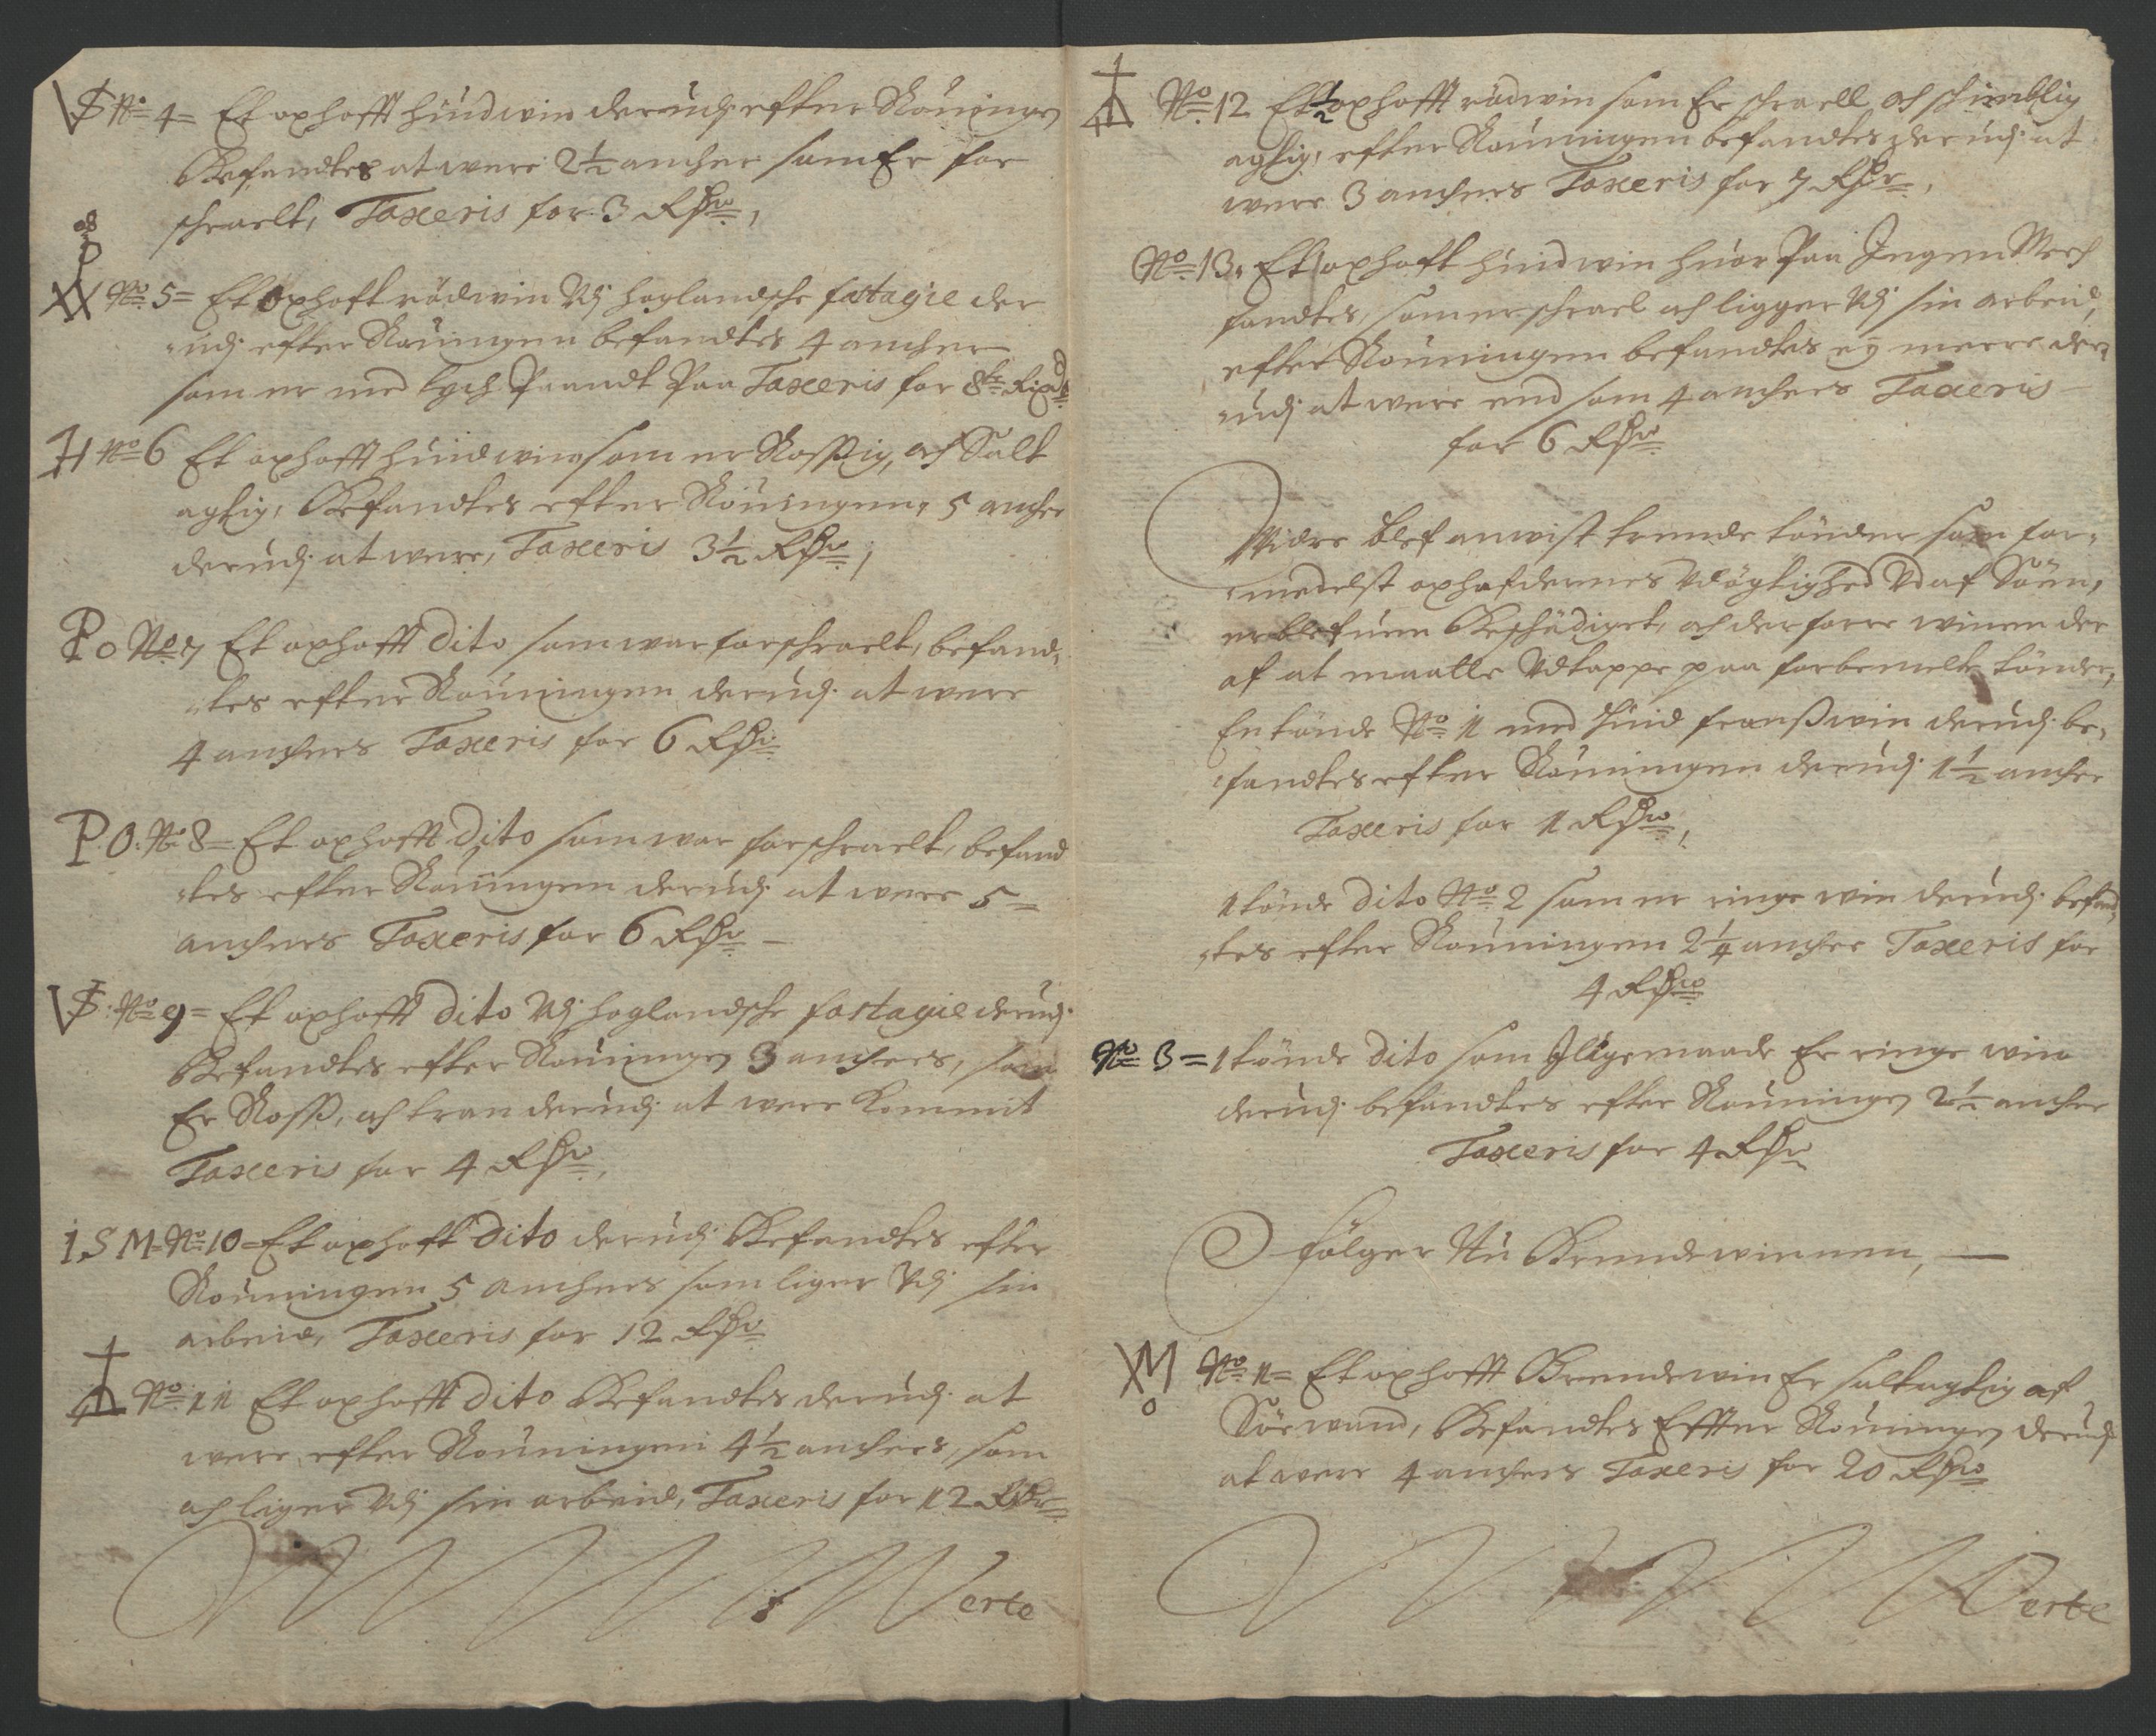 VS No 4= Et oxhofft húidwin derudj efter Rouinngen
Befandtes at were 2½ ancher som Er for
schraelt, Taxeris for 3 Rdr,
No 5= Et Oxhoft rödwin Udj hoglandsche fatagie der
udj efter Rouingen befandtes 4 ancher
som er med tych Paandt Paa Taxeris for 8te Rixdr
H No 6 Et oxhofft húidwin som er Roßig, och Salt
agtig, Befandtes efter Rouingen, 5 ancher
derudj at were, Taxeris 3½ Rdr,
Po No 7 Et oxhofft Dito som war forschraelt, befand,
tes efter Rouningen derudj at were
4 anchers Taxeris for 6 Rdr
P O. No 8= Et oxhofft Dito som war forschraelt, befand
tes efter Rouningen derudj at were 5=
anchers Taxeris for 6 Rdr –
VS: No 9= Et oxhofft Dito Udj hoglandsche fastagie derudj
Befandtes efter Rouningen 3 anchers, som
Er Roß, och tran derudj at were Kommit
Taxeris for 4 Rdr,
I S M= No 10= Et oxhoft Dito derudj Befandtes efter
Rouningen 5 anchers som liger Udj sin
arbeid, Taxeris for 12 Rdr
No 11 Et oxhofft Dito Befandtes derudj at
were efter Rouningen 4½ anchers, som
och liger Udj sin arbeid, Taxeris for 12 Rdr
Verte
No 12 Et ½ oxhofft rödwin som Er schraell och schimblig
agtig, efter Rouningen befandtes derudj at
were 3 anchers Taxeris for 7 Rdr,
No 13, Et oxhoft húidwin huor Paa Ingen Merch
fandtes, som er schrael och ligger Udj sin arbeid,
efter Rouningen befandtes ey meere der,
udj at were end som 4 anchers Taxeris
for 6 Rdr
Widre blef anwist trende tönder som for,
medelst oxhofdernes Udögtighed Udaf Söen,
er blefuen Beschädiget, och derforre winen der
af at maatte Udtappe paa forbemelte tönder,
En tönde No 1 med húid franßwin derudj be,
fandtes efter Rouningen derudj 1½ ancher
Taxeris for 11 Rdr,
1 tönde Dito No 2 som er ringe win derudj befand,
tes efter Rouningen 2¼ ancher Taxeris for
4 Rdr
No 3= 1 tönde Dito som Jligemaade Er ringe win
derudj befandtes efter Rouningen 2½ ancher
Taxeris for 4 Rdr
Fölger Nu Brendewinnen, —
XM o No 1= Et oxhofft Brendewin Er saltagtig af
Söe wand, Befandtes Effter Rouningen derudj
at were 4 anchers Taxeris for 20 Rdr
Verte